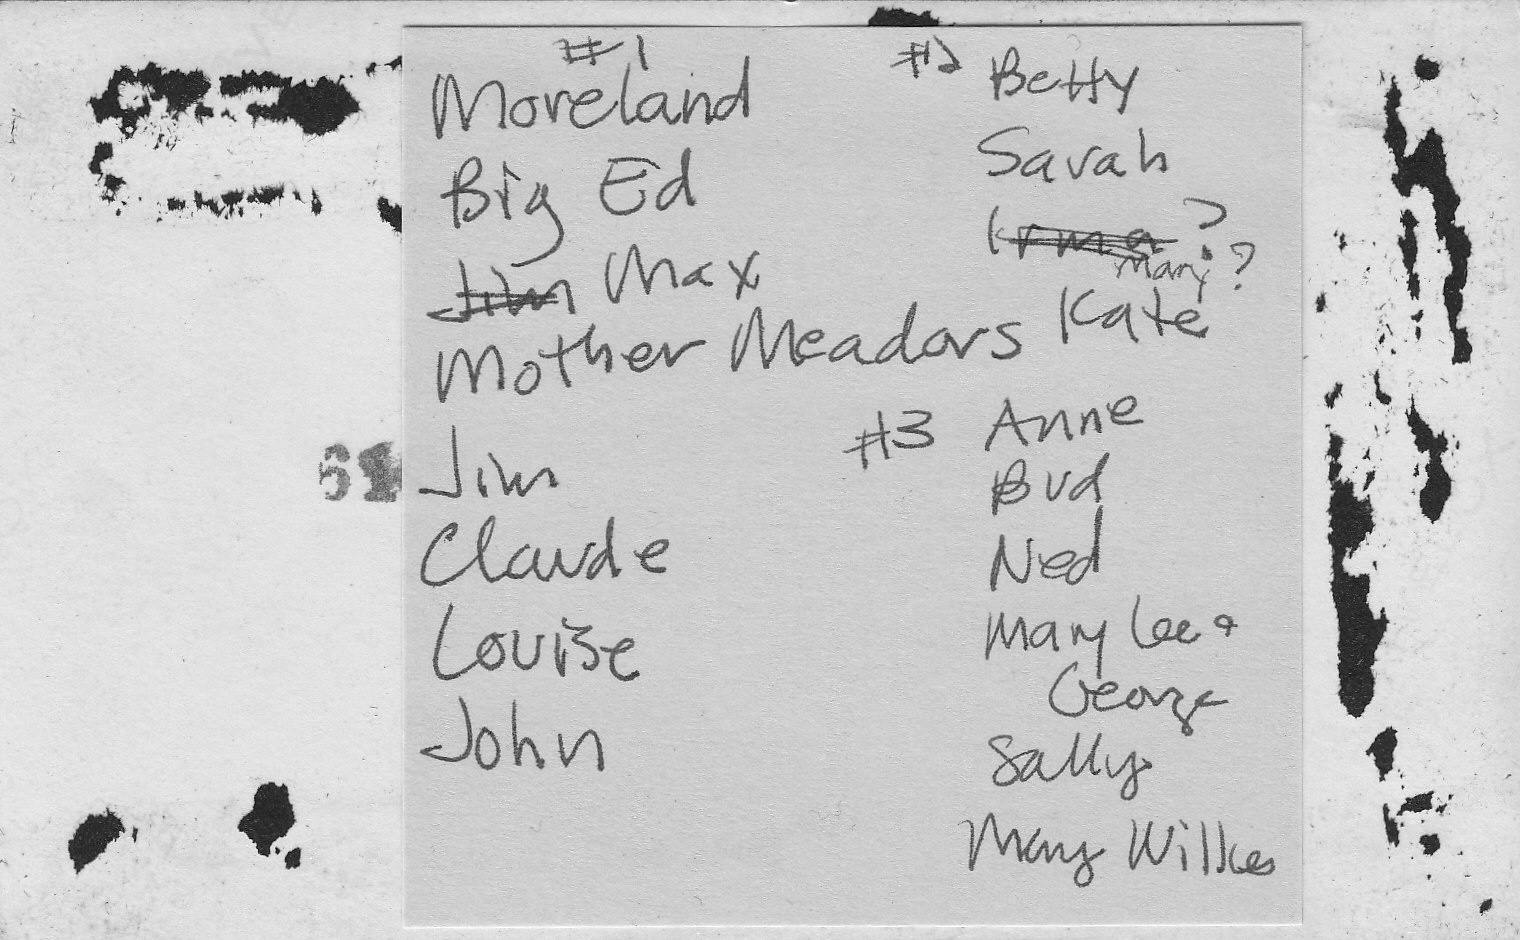 #1
Moreland
Big Ed
Jim Max
Mother Meadors
Jim
Claude
Louise
John
#2 Betty
Sarah
Irma ?
Mary ?
Kate
#3 Anne
Bud
Ned
Mary Lee +
George
Sally
Mary Wilkes
61